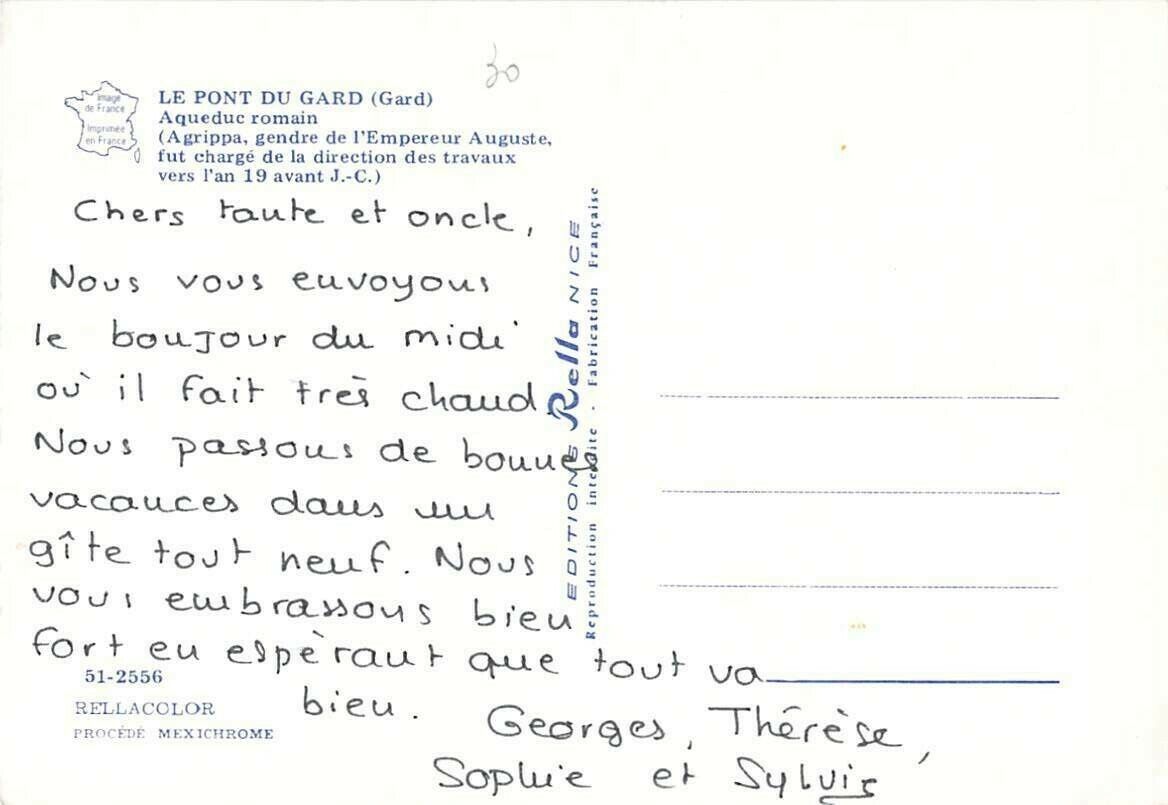 30
Image
de France
Imprimée
en France
LE PONT DU GARD (Gard)
Aqueduc romain
(Agrippa, gendre de l'Empereur Auguste,
fut chargé de la direction des travaux
vers l'an 19 avant J.-C.)
Chers tante et oncle,
Nous vous envoyons
le bonjour du midi
où il fait très chaud.
Nous passons de bonnes
vacances dans un
gîte tout neuf. Nous
vous embrassons bien
fort en espèrant que tout va
bien.
Georges, Thérèse,
Sophie et Sylvie
EDITIONS Rella NICE
Reproduction interdite - Fabrication Française
51-2556
RELLACOLOR
PROCÉDÉ MEXICHROME